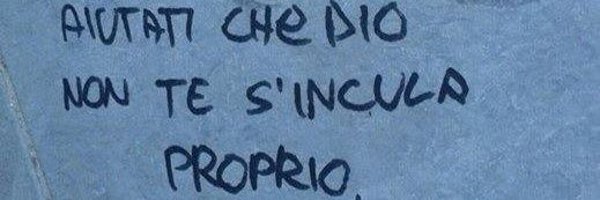 AIUTATI CHE DIO
NON TE S'INCULA
PROPRIO.